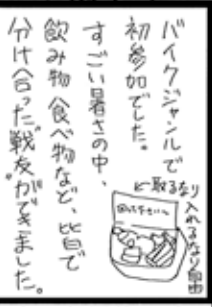 バイクジャンルで
初参加でした。
すごい暑さの中、
飲み物食べ物など、皆で
分け合った戦友ができました。
←取るなり
入れるなり自由